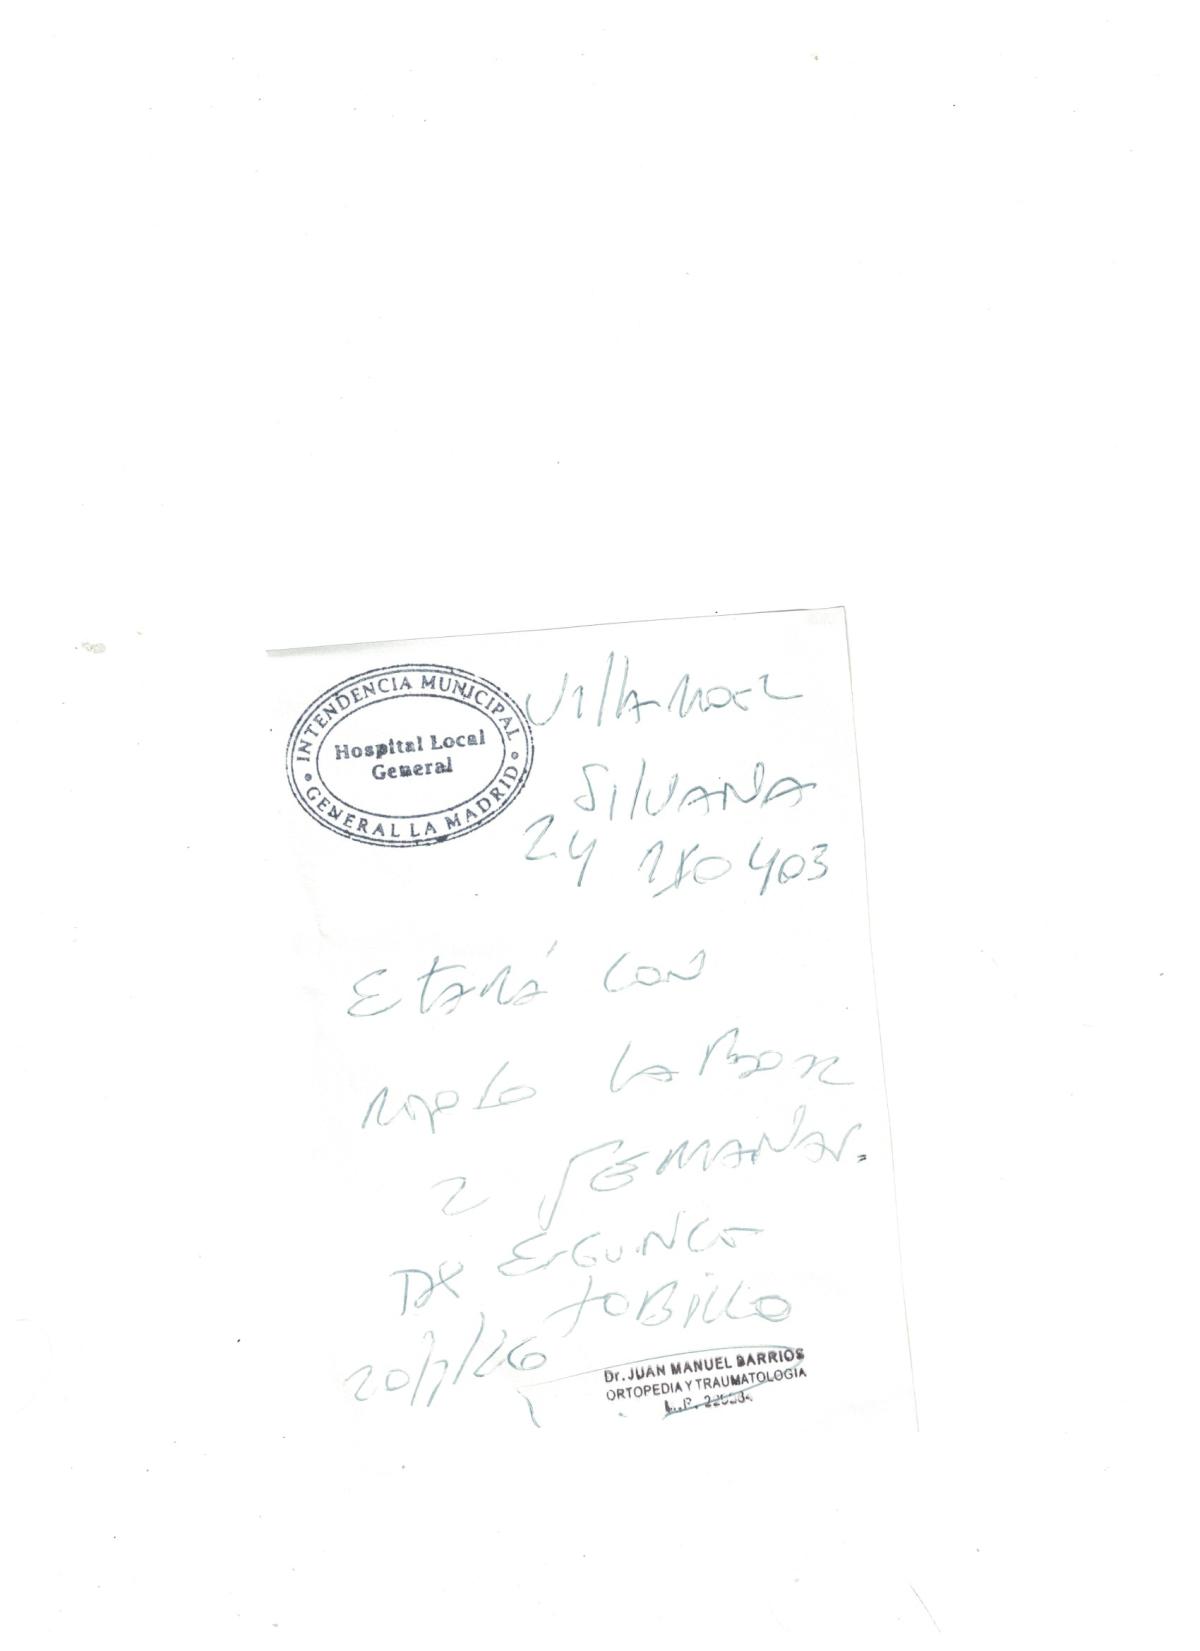 INTENDENCIA MUNICIPAL
Hospital Local
General
GENERAL LA MADRID
Villarroel
Silvana
24 180 403
Etará con
reposo laboral
2 semanas.
DX Esguince
tobillo
20/7/26
Dr. JUAN MANUEL BARRIOS
ORTOPEDIA Y TRAUMATOLOGIA